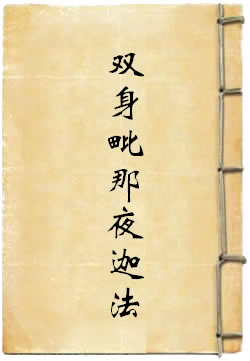 双身毗那夜迦法